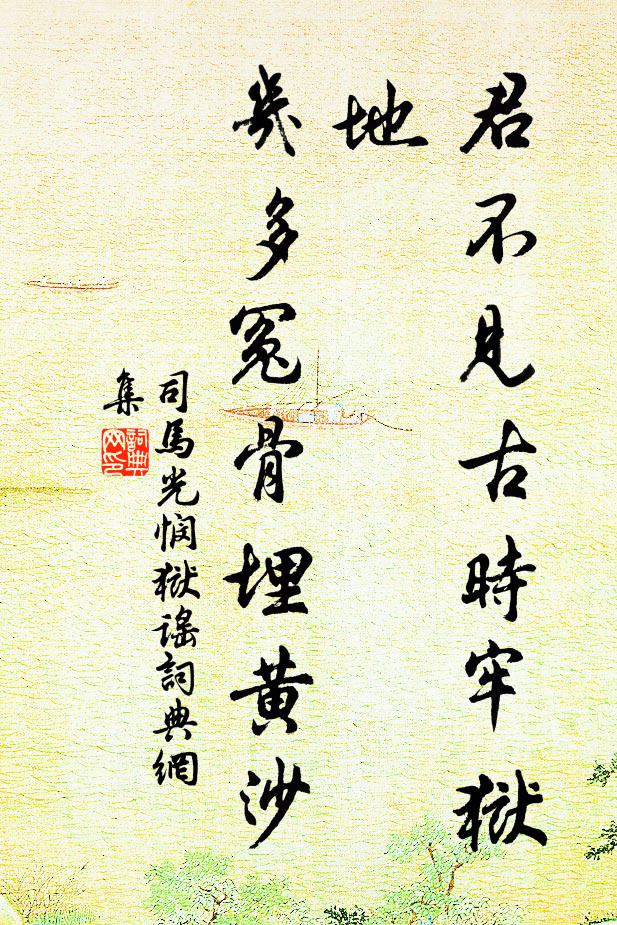 君不見古時牢獄
地
幾多冤骨埋黃沙
司馬光憫獄謠詞典網
集
詞典網印